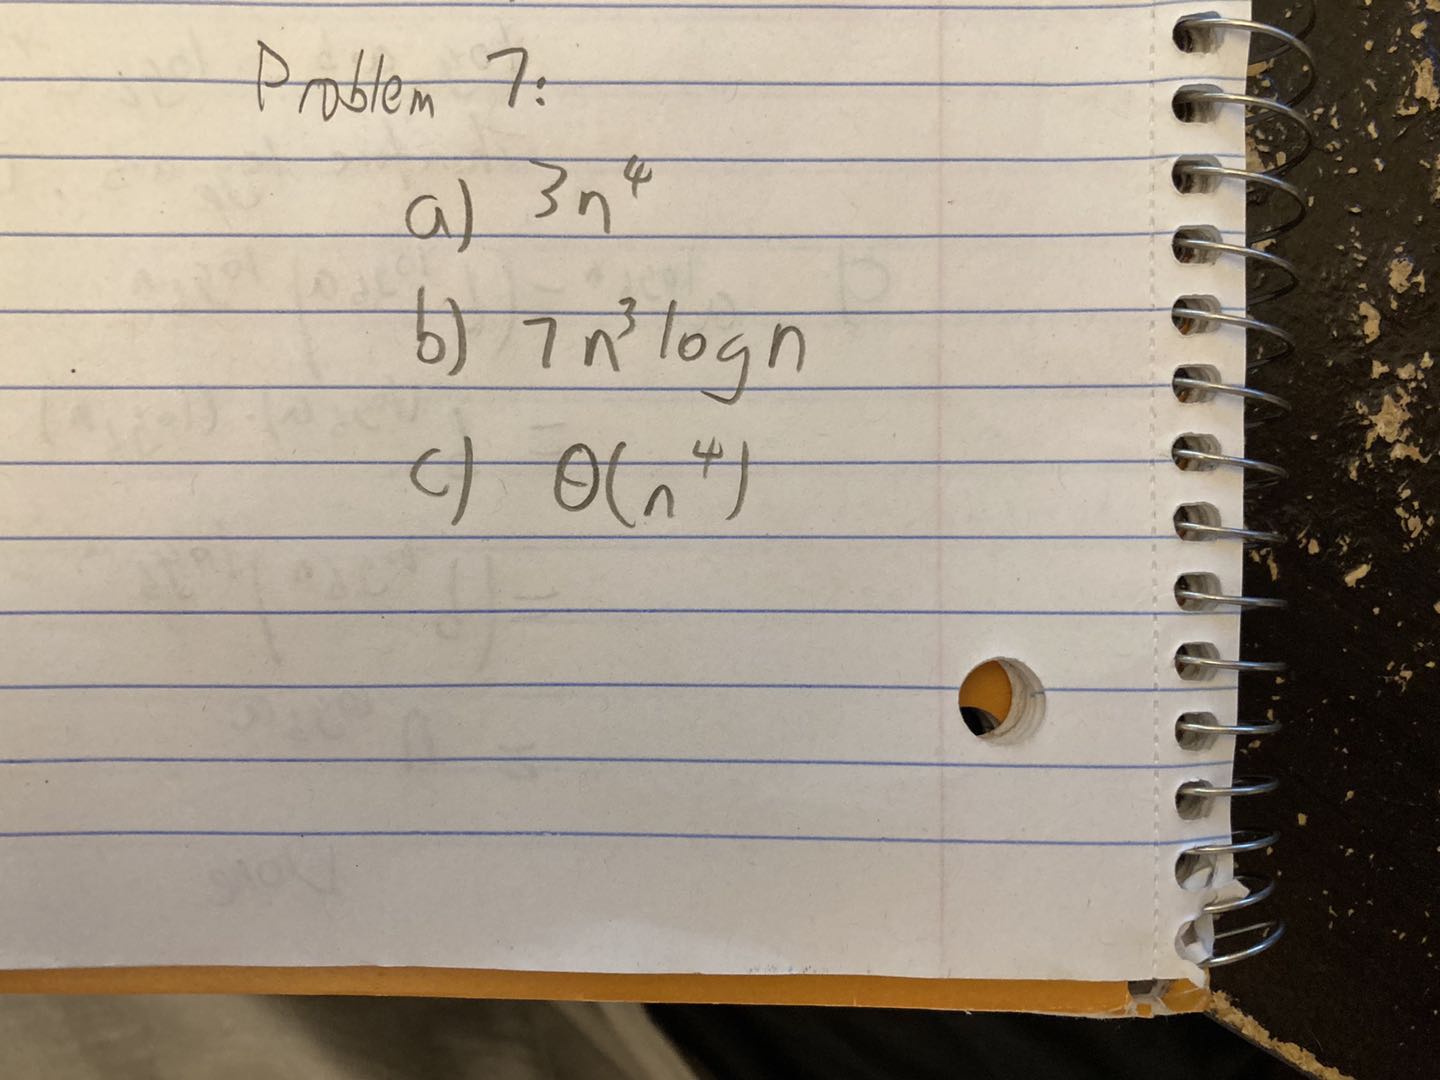 Problem 7:
a) 3n⁴
b) 7n³ log n
c) Θ(n⁴)